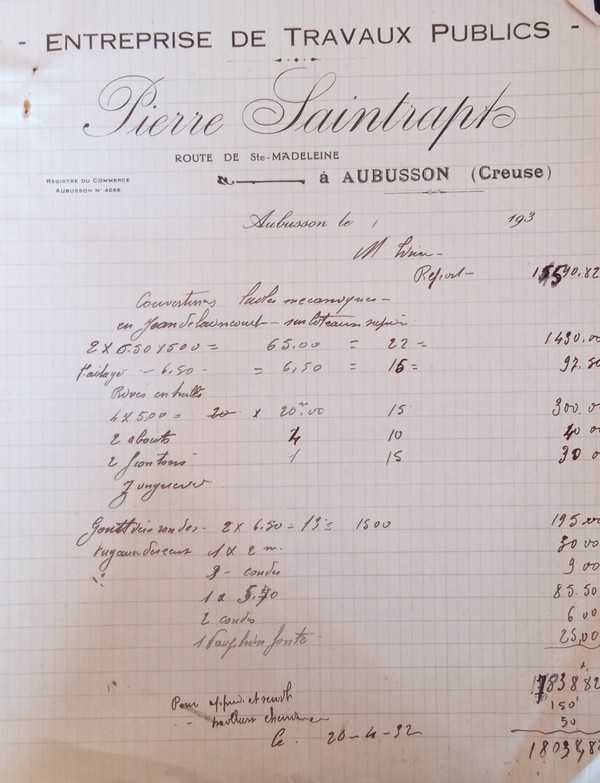 - ENTREPRISE DE TRAVAUX PUBLICS -
Pierre Saintrapt
ROUTE DE Ste-MADELEINE
REGISTRE DU COMMERCE
AUBUSSON N° 4086
à AUBUSSON (Creuse)
Aubusson le 193
M
Report - 15540,82
Couvertures tuiles mecaniques -
en Jeandelaincourt - sur liteaux sapin
2 X 6.50 X 500 = 65.00 = 22 = 1430.00
Faitages - 6,50 - = 6,50 = 15 = 97.50
Rives en tuile
4 X 5,00 = 20 x 20m.00 15 300.00
2 abouts 4 10 40 00
2 frontons 1 15 30 00
Zinguerie
Gouttières rondes - 2 x 6.50 = 13 = 1500 195.00
tuyau descente 1 x 2 m. 30 00
3 - coudes 9 00
1 x 5.70 85.50
2 coudes 6 00
1 Dauphin fonte 25,00
17838,82
Pour 150
- 50
Ce 20-4-32
18038,82